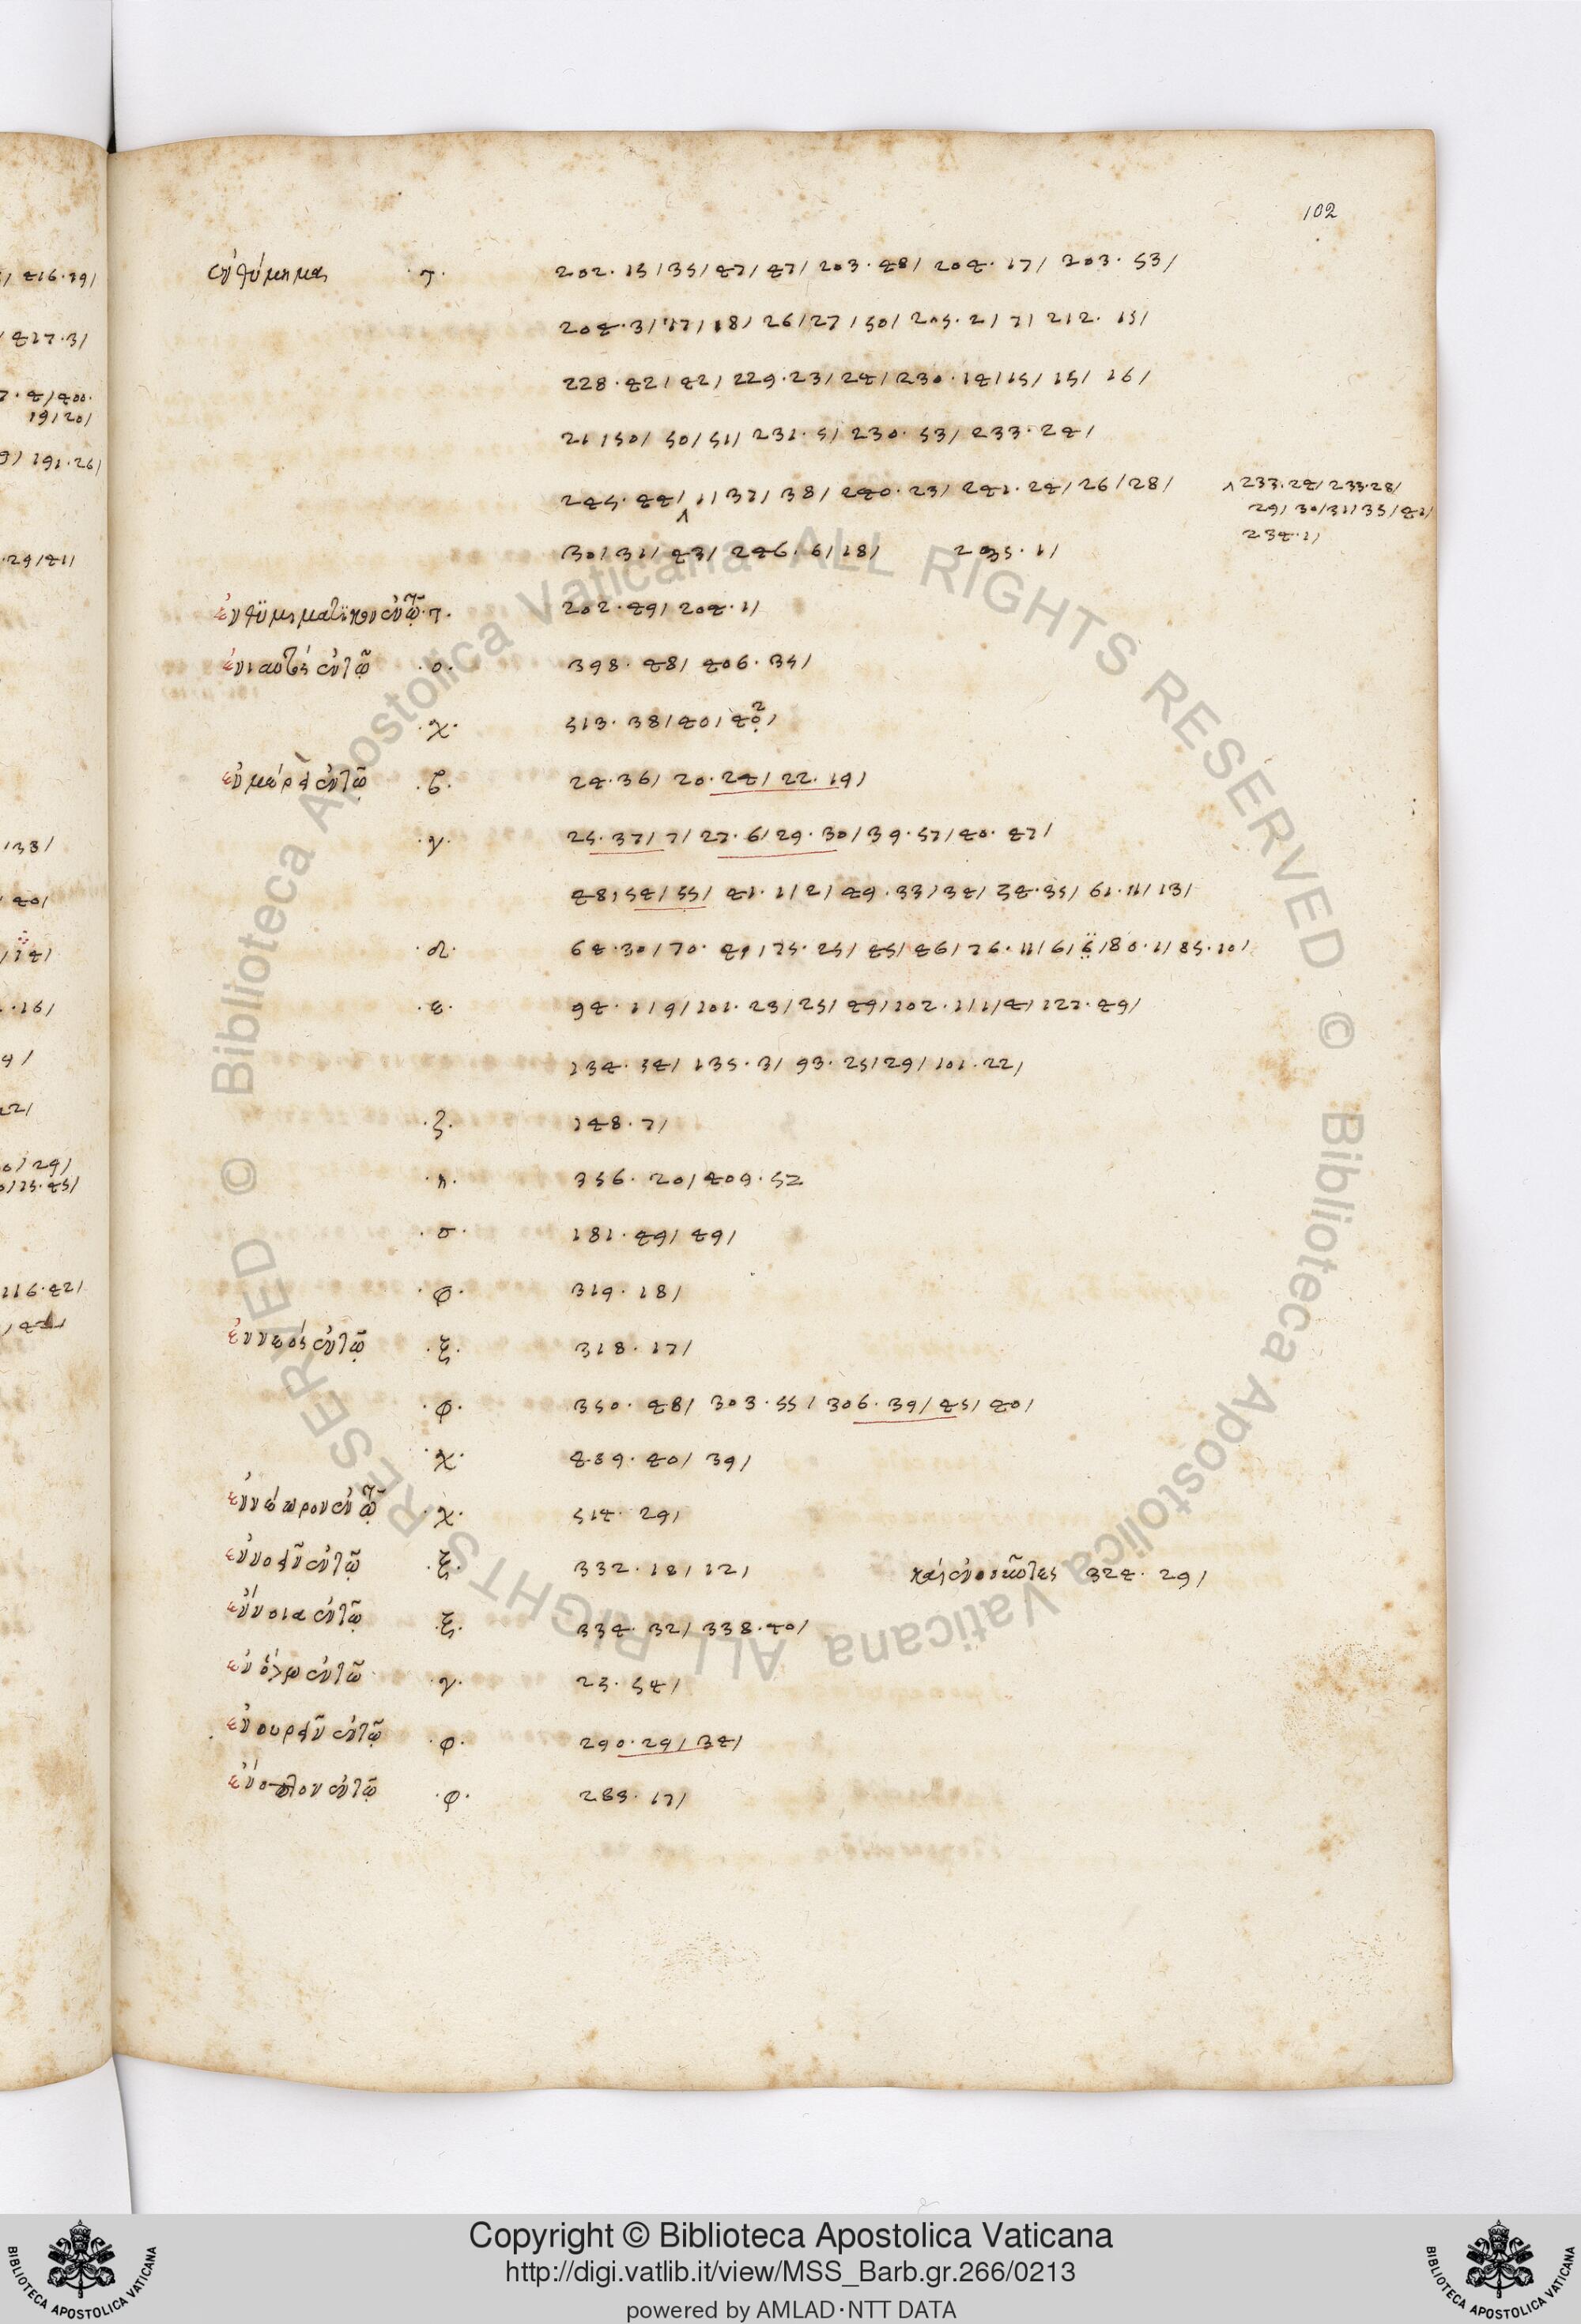 102
ἐνθύμημα ·τ· 202·15/35/47/47/203·48/204·17/203·53/
204·3/17/18/26/27/50/205·2/7/212·15/
228·42/42/229·23/24/230·14/15/15/16/
21/50/50/51/231·5/230·53/233·24/
245·44/1/37/38/240·23/241·24/26/28/
^233·24/233·28/
29/30/31/35/41/
234·1/
30/31/43/246·6/18/ 235·1/
ἐνθυμηματικὸν ἐν τῷ ·τ· 202·49/204·1/
ἐνιαυτὸς ἐν τῷ ·ο· 398·48/406·35/
·χ· 513·38/40/40²/
ἐν μέρει ἐν τῷ ·β· 24·36/20·24/22·19/
·γ· 25·37/7/27·6/29·30/39·57/40·47/
48/54/55/41·1/2/49·33/34/54·35/61·11/13/
·δ· 64·30/70·49/75·25/45/46/76·11/6/6/80·1/85·10/
·ε· 94·1/9/101·23/25/49/102·1/1/4/127·49/
134·54/135·3/93·25/29/101·22/
·ζ· 148·7/
·η· 356·20/409·52
·σ· 181·49/49/
·φ· 319·18/
ἐννεός ἐν τῷ ·ξ· 318·17/
·φ· 350·48/303·55/306·39/45/40/
·χ· 489·40/39/
ἐννέωρον ἐν τῷ ·χ· 514·29/
ἐνοεῖν ἐν τῷ ·ξ· 332·18/12/ 324·29/
ἔννοια ἐν τῷ ·ξ· 334·32/338·40/
ἐν ὅλῳ ἐν τῷ ·γ· 25·54/
ἐνουρεῖν ἐν τῷ ·φ· 290·29/34/
ἔνοπλον ἐν τῷ ·φ· 285·17/
Copyright © Biblioteca Apostolica Vaticana
http://digi.vatlib.it/view/MSS_Barb.gr.266/0213
powered by AMLAD·NTT DATA
BIBLIOTECA APOSTOLICA VATICANA
BIBLIOTECA APOSTOLICA VATICANA
© Biblioteca Apostolica Vaticana ALL RIGHTS RESERVED
© Biblioteca Apostolica Vaticana ALL RIGHTS RESERVED